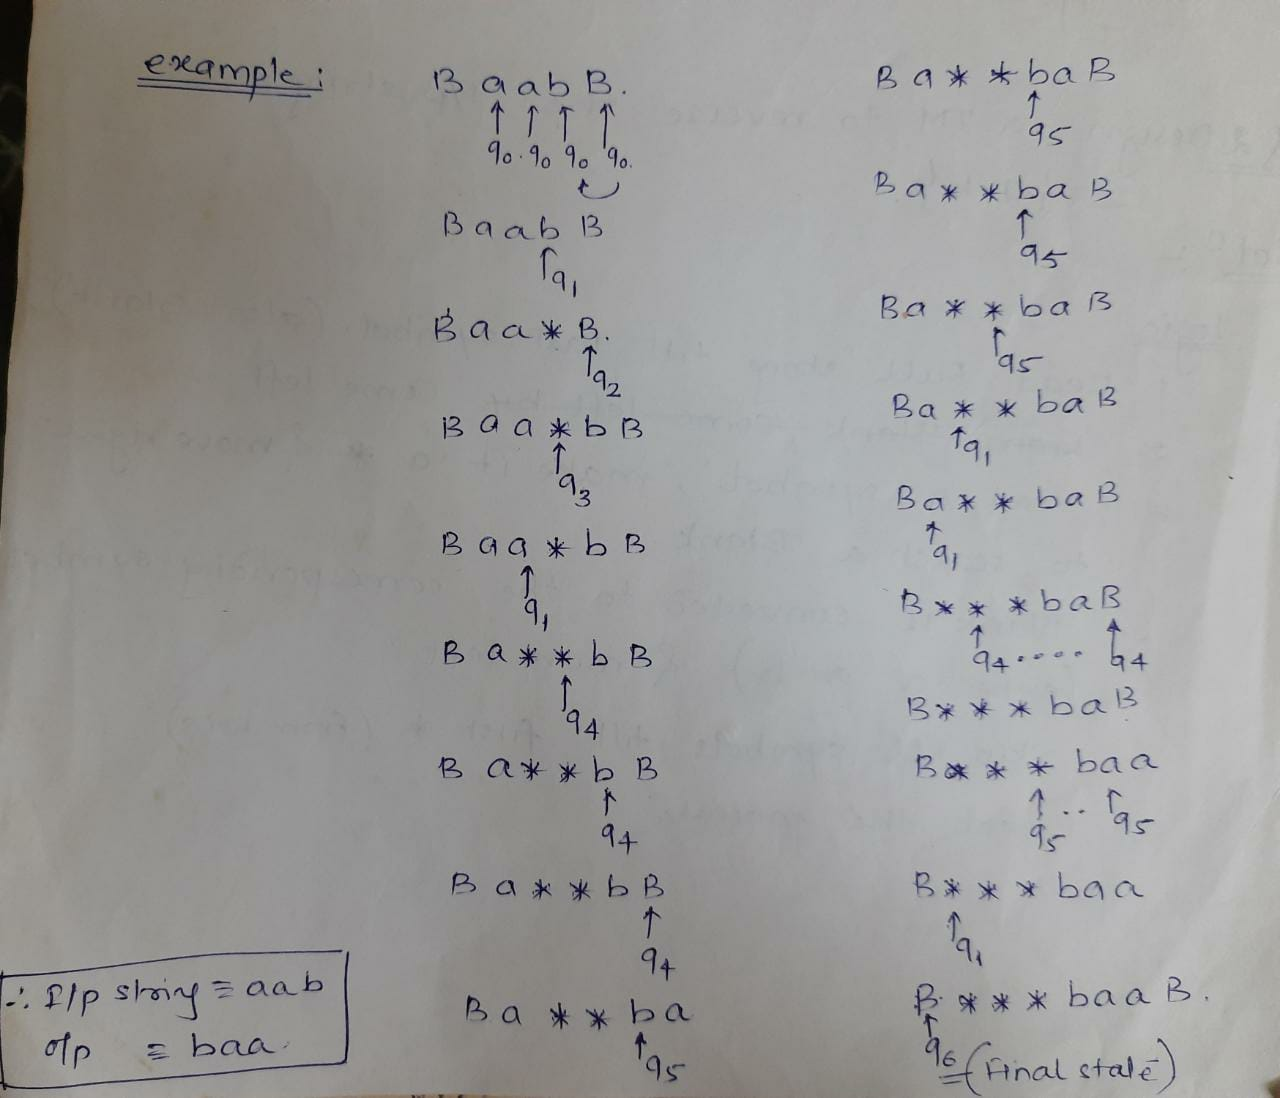 example:
B a a b B.
↑ ↑ ↑ ↑
q0. q0 q0 q0.
B a a b B
↑q1
B a a * B.
↑q2
B a a * b B
↑
q3
B a a * b B
↑
q1
B a * * b B
↑
q4
B a * * b B
↑
q4
B a * * b B
↑
q4
B a * * b a
↑q5
∴ I/p string ≡ aab
o/p ≡ baa.
B a * * b a B
↑
q5
B a * * b a B
↑
q5
B a * * b a B
↑q5
B a * * b a B
↑q1
B a * * b a B
↑
q1
B * * * b a B
↑ ↑
q4 ..... q4
B * * * b a B
B * * * b a a
↑ .. ↑
q5 q5
B * * * b a a
↑q1
B * * * b a a B.
↑
q6 (Final state)